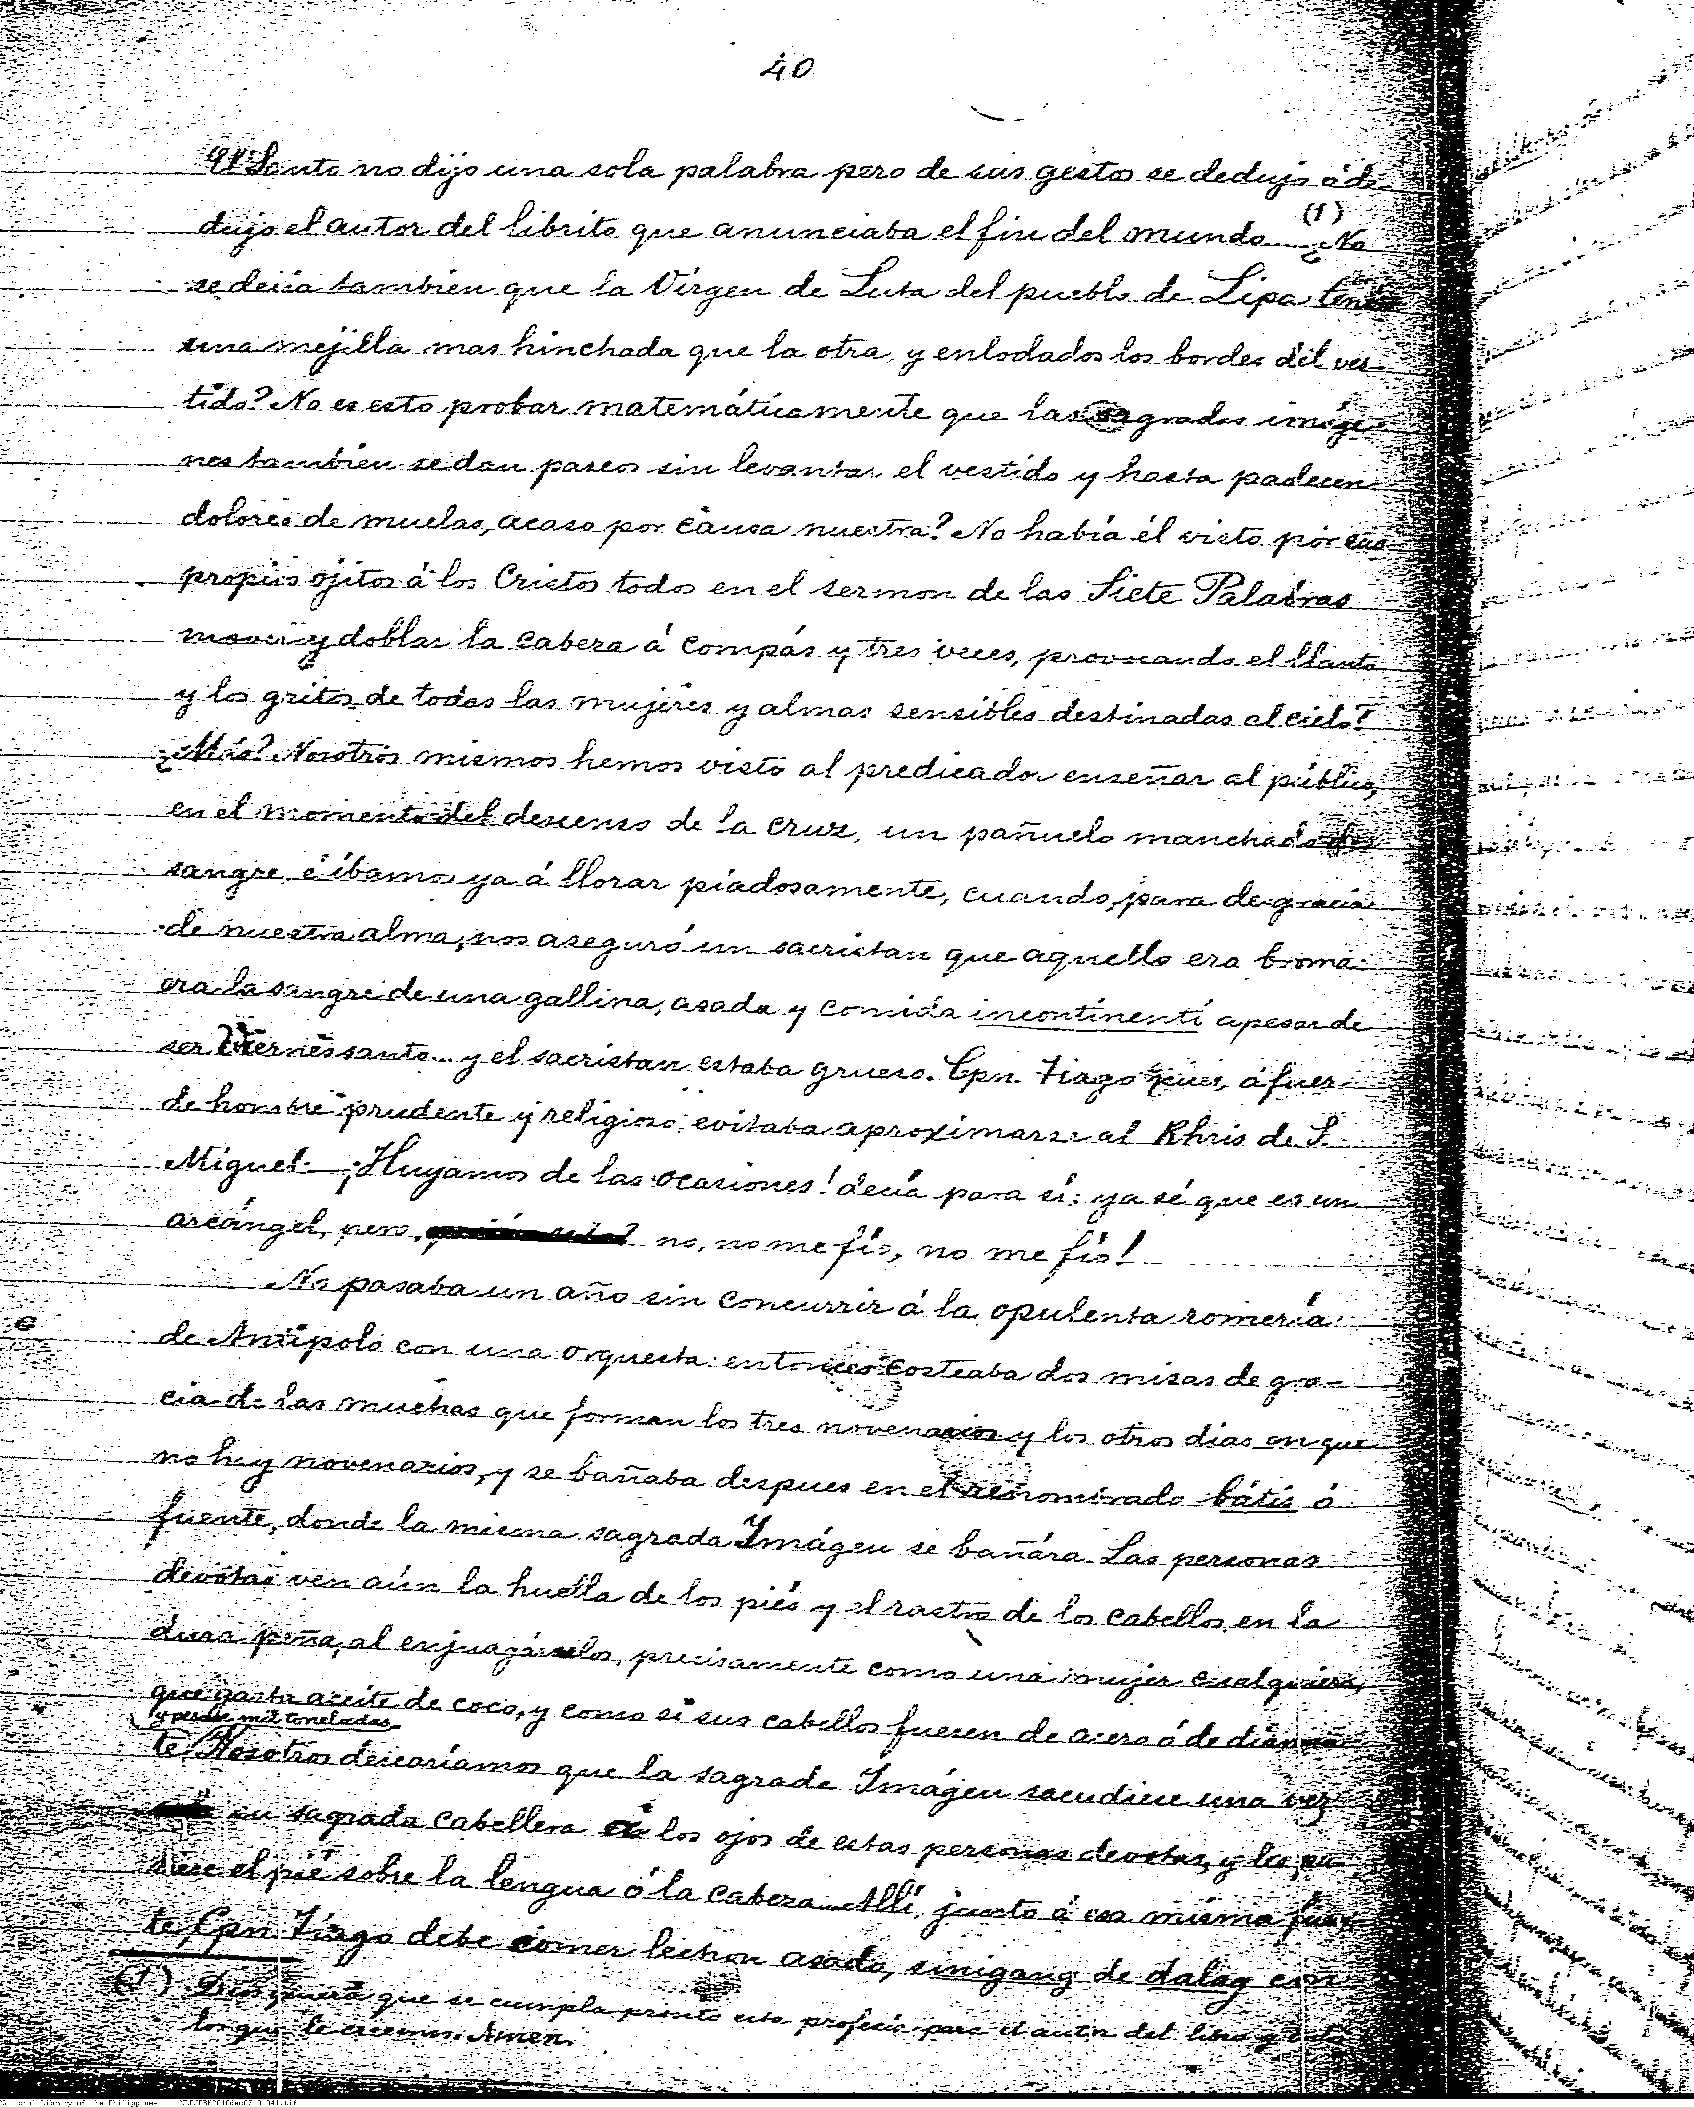 40
El Santo no dijo una sola palabra pero de sus gestos se dedujo ó de
dujo el autor del librito que anunciaba el fin del mundo (1) ¿No
se decia tambien que la Virgen de Luta del pueblo de Lipa tenía
una mejilla mas hinchada que la otra, y enlodados los bordes del ves-
tido? No es esto probar matemáticamente que las sagradas imáge-
nes tambien se dan paseos sin levantar el vestido y hasta padecen
dolores de muelas, acaso por causa nuestra? No había él visto por sus
propios ojitos á los Cristos todos en el sermon de las Siete Palabras
mover y doblar la cabeza á compás y tres veces, provocando el llanto
y los gritos de todas las mujeres y almas sensibles destinadas al cielo?
¿Más? Nosotros mismos hemos visto al predicador enseñar al público,
en el momento del descenso de la cruz, un pañuelo manchado de
sangre, é íbamos ya á llorar piadosamente, cuando, para desgracia
de nuestra alma, nos aseguró un sacristan que aquello era broma:
era la sangre de una gallina, asada y comida incontinenti apesar de
ser Viernes santo... y el sacristan estaba grueso. Cpn. Tiago pues, á fuer
de hombre prudente y religioso, evitaba aproximarse al Khris de S.
Miguel. — ¡Huyamos de las ocasiones! decía para sí: ya sé que es un
arcángel, pero, no, no me fío, no me fío!
No pasaba un año sin concurrir á la opulenta romería
de Antipolo con una orquesta: entonces costeaba dos misas de gra-
cia de las muchas que forman los tres novenarios y los otros dias en que
no hay novenarios, y se bañaba despues en el renombrado bátis ó
fuente, donde la misma sagrada Imágen se bañára. Las personas
devotas ven aún la huella de los piés y el rastro de los cabellos en la
dura peña, al enjuagárselos, precisamente como una mujer cualquiera,
que gasta aceite de coco, y como si sus cabellos fuesen de acero ó de diaman-
y pesase mil toneladas
te. Nosotros desearíamos que la sagrada Imágen sacudiese una vez
su sagrada cabellera á los ojos de estas personas devotas, y les pu-
siese el pié sobre la lengua ó la cabeza. Allí, junto á esa misma fuen-
te, Cpn. Tiago debe comer lechon asado, sinigang de dalag con
(1) Dios quiera que se cumpla pronto esta profecía para el autor del libro y todos
los que le creemos. Amen.